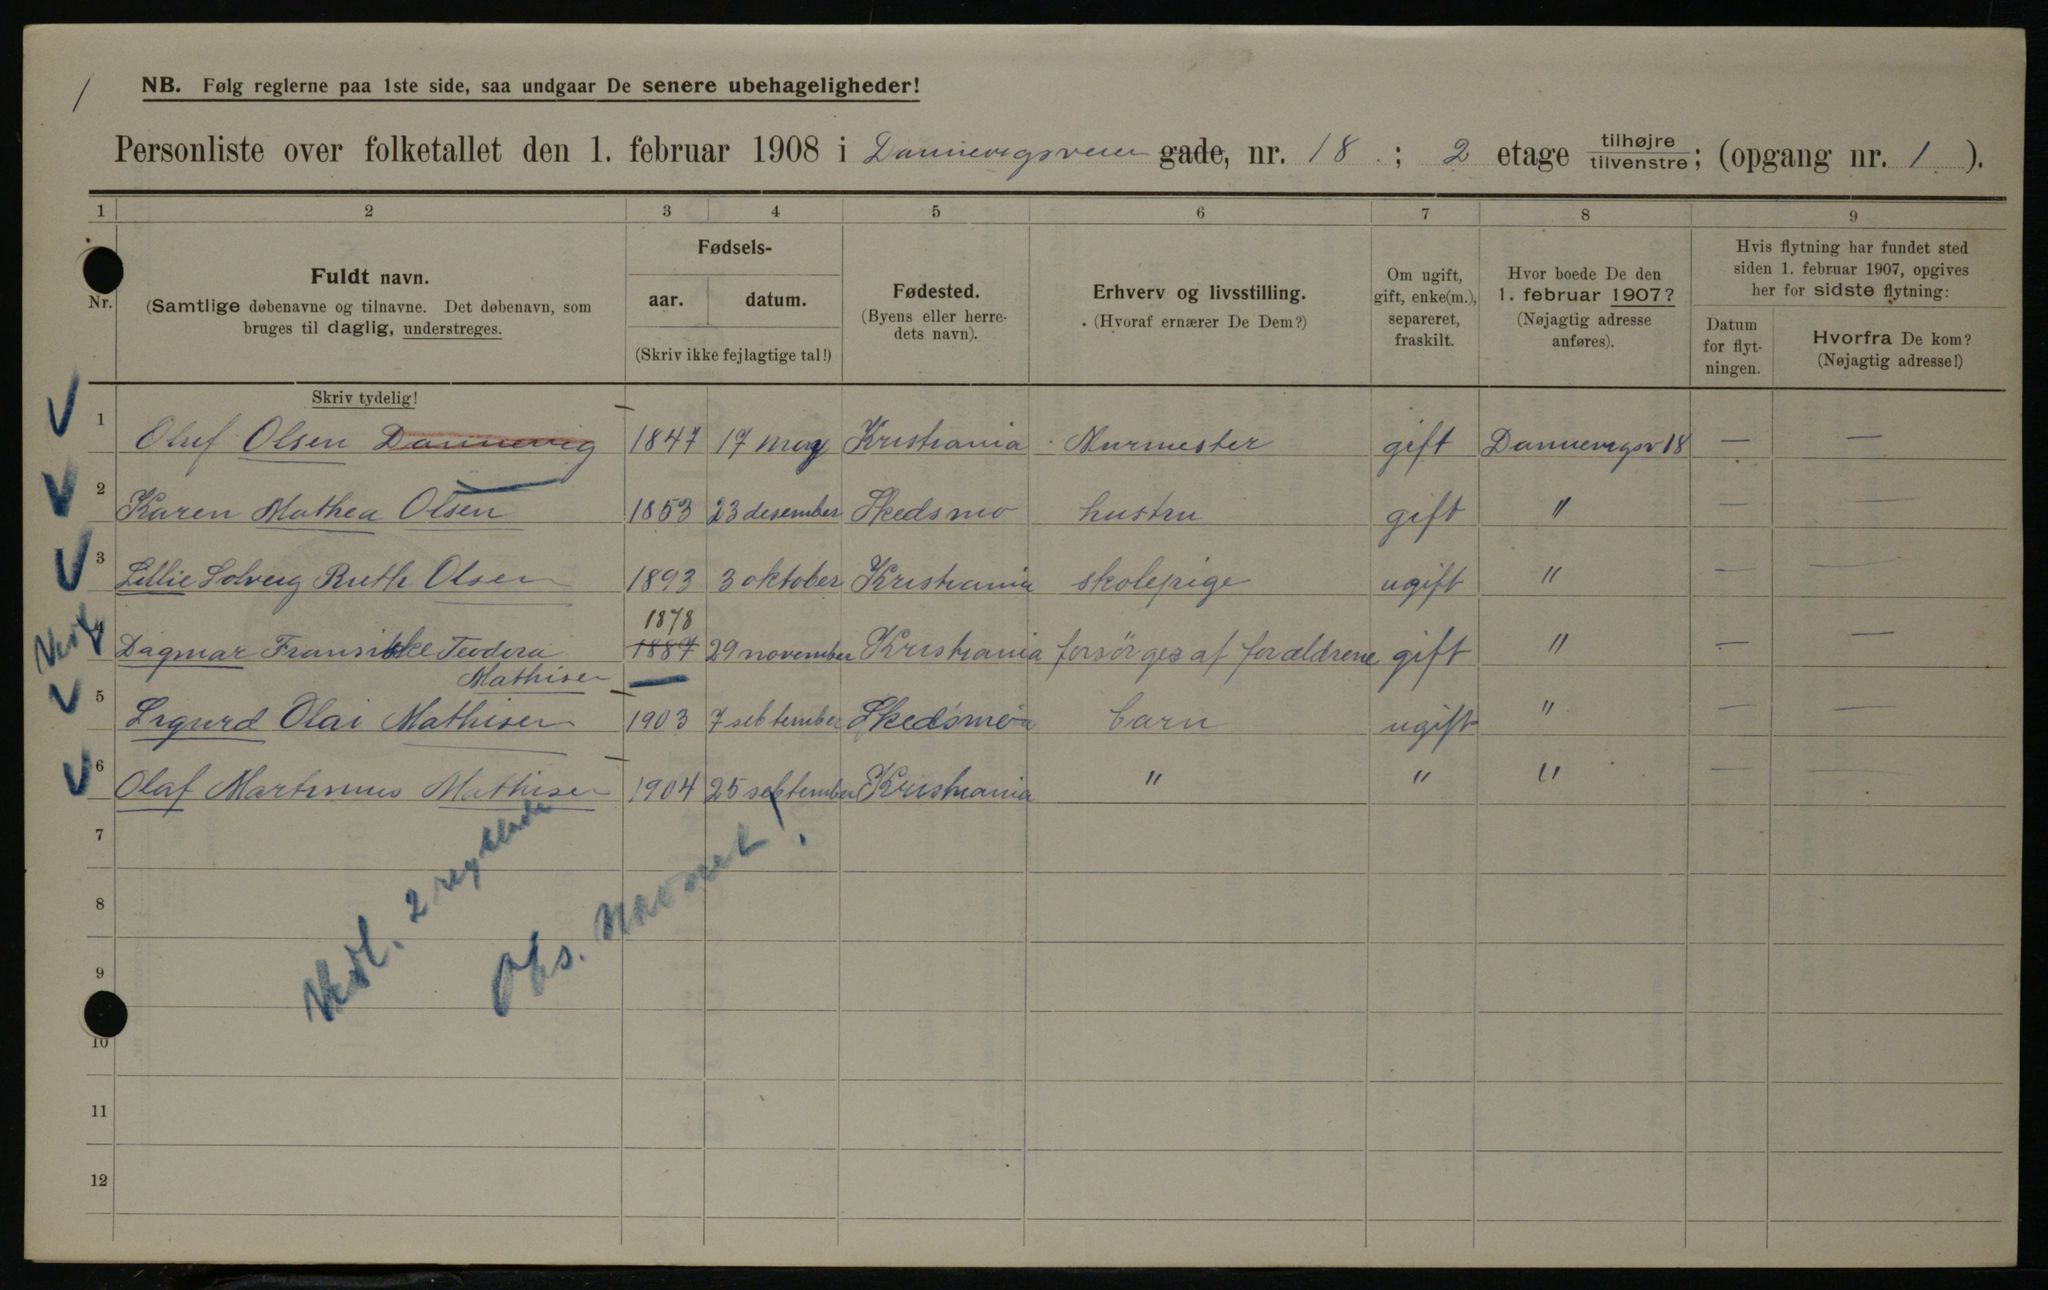 NB. Følg reglerne paa 1ste side, saa undgaar De senere ubehageligheder!
Personliste over folketallet den 1. februar 1908 i Dannevigsveien gade, nr. 18 ; 2 etage tilhøjre tilvenstre; (opgang nr. 1 ).
1 2 3 4 5 6 7 8 9
Nr.
Fuldt navn.
(Samtlige døbenavne og tilnavne. Det døbenavn, som
bruges til daglig, understreges.
Skriv tydelig!
Fødsels-
aar. datum.
(Skriv ikke fejlagtige tal!)
Fødested.
(Byens eller herre-
dets navn).
Erhverv og livsstilling.
(Hvoraf ernærer De Dem?)
Om ugift,
gift, enke(m.),
separeret,
fraskilt.
Hvor boede De den
1. februar 1907?
(Nøjagtig adresse
anføres).
Hvis flytning har fundet sted
siden 1. februar 1907, opgives
her for sidste flytning:
Datum
for flyt-
ningen.
Hvorfra De kom?
(Nøjagtig adresse!)
1 Oluf Olsen Dannevig 1847 17 may Kristiania Murmester gift Dannevigsv 18 — —
2 Karen Mathea Olsen 1853 23 desember Skedsmo hustru gift " — —
3 Lillie Solveig Ruth Olsen 1893 3 oktober Kristiania skolepige ugift " — —
1878
4 Dagmar Fransikke Teodora 1887 29 november Kristiania forsörges af forældrene gift " — —
Mathisen
5 Sigurd Olai Mathisen 1903 7 september Skedsmo barn ugift " — —
6 Olaf Martinius Mathisen 1904 25 september Kristiania " " " — —
7
8
9
10
11
12
Obs. navnet!